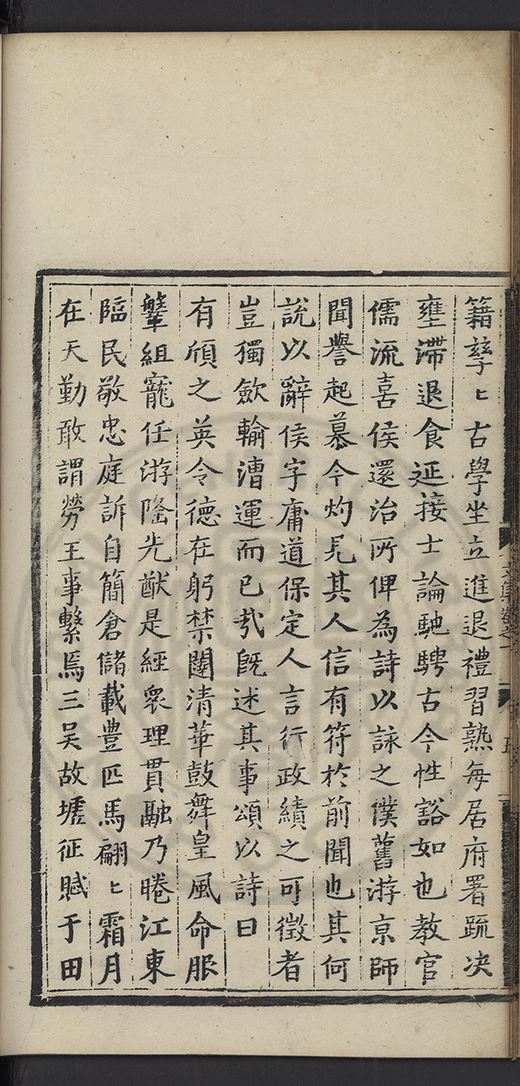 籍孳〻古學坐立進退禮習熟每居府署疏决
壅滯退食延接士論馳騁古今性豁如也教官
儒流喜侯還治所俾為詩以詠之僕舊游京師
聞譽起慕今灼見其人信有符於前聞也其何
說以辭侯字庸道保定人言行政績之可徵者
豈獨斂輸漕運而已哉既述其事頌以詩曰
有頎之英令德在躬禁闥清華鼓舞皇風命服
鞶組寵任游隆先猷是經衆理貫融乃睠江東
臨民敬忠庭訴自簡倉儲載豊匹馬翩〻霜月
在天勤敢謂勞王事繫焉三吴故墟征賦于田